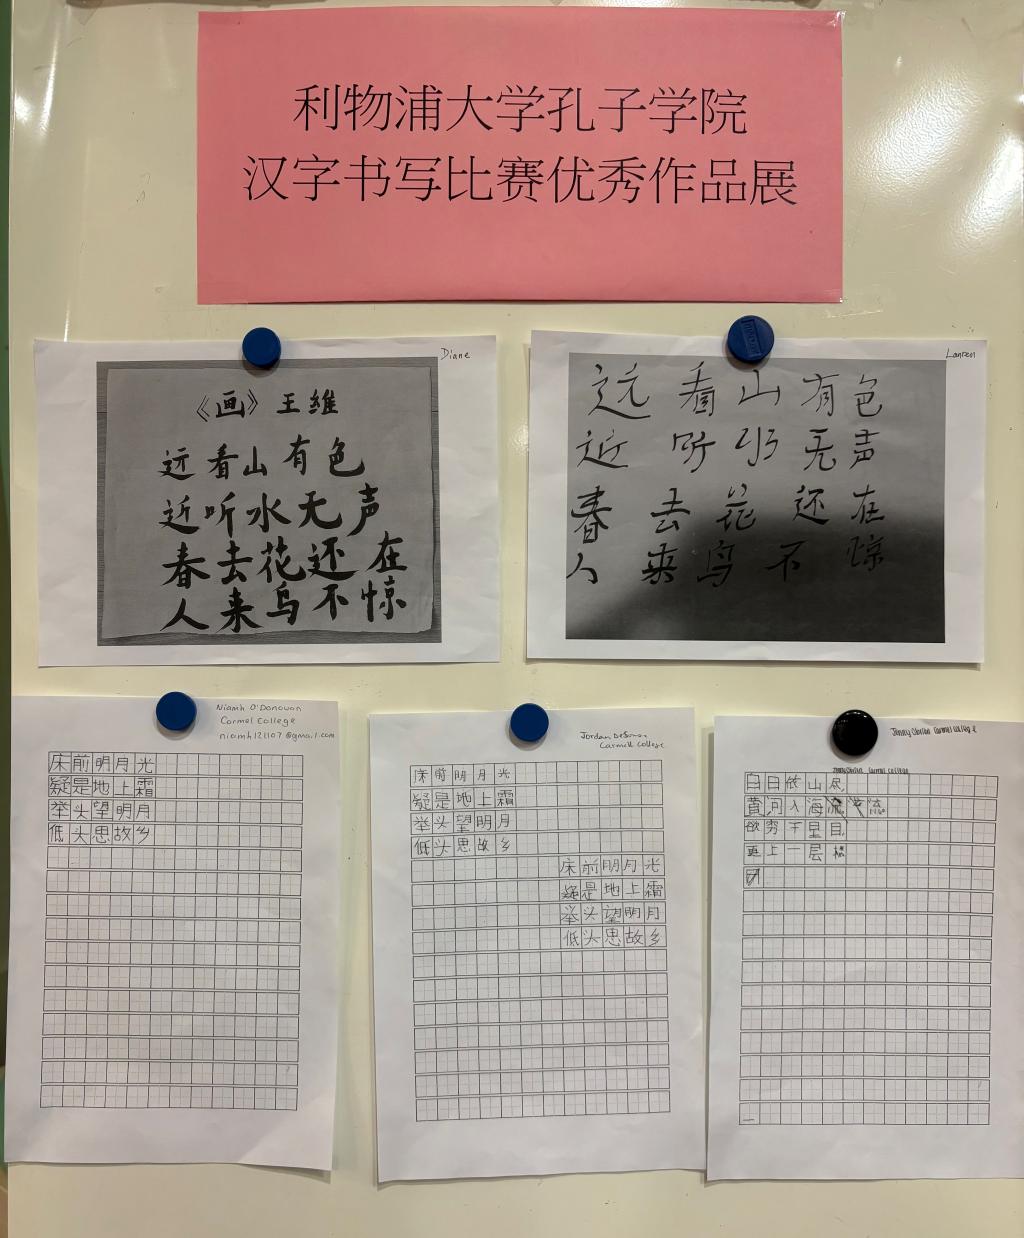 利物浦大学孔子学院
汉字书写比赛优秀作品展
Diane
《画》王维
远看山有色
近听水无声
春去花还在
人来鸟不惊
Lauren
远看山有色
近听水无声
春去花还在
人来鸟不惊
Niamh O'Donovan
Carmel College
niamh121107@gmail.com
床前明月光
疑是地上霜
举头望明月
低头思故乡
Jordan
Carmell College
床前明月光
疑是地上霜
举头望明月
低头思故乡
床前明月光
疑是地上霜
举头望明月
低头思故乡
Jenny Carmel College
Carmel College
白日依山尽
黄河入海流
欲穷千里目
更上一层楼